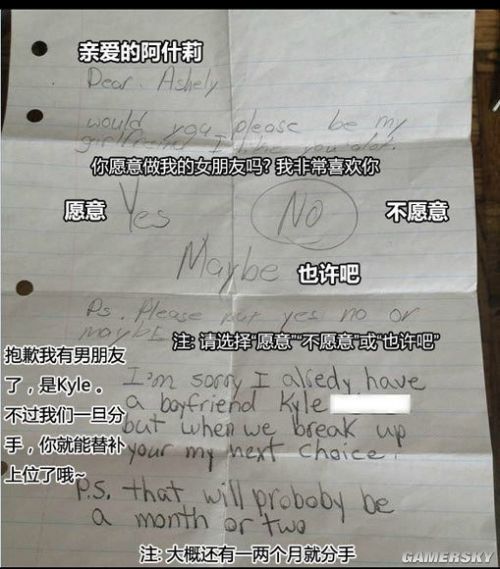 亲爱的阿什莉
Dear. Ashely
would you please be my
girlfriend I like you alot.
你愿意做我的女朋友吗? 我非常喜欢你
愿意 Yes No 不愿意
Maybe 也许吧
Ps. Please put yes no or
maybe
注: 请选择"愿意""不愿意"或"也许吧"
抱歉我有男朋友
了，是Kyle 。
不过我们一旦分
手，你就能替补
上位了哦~
I'm sorry I alredy have
a boyfriend Kyle
but when we break up
your my next choice.
P.S. that will proboby be
a month or two
注: 大概还有一两个月就分手
GAMERSKY